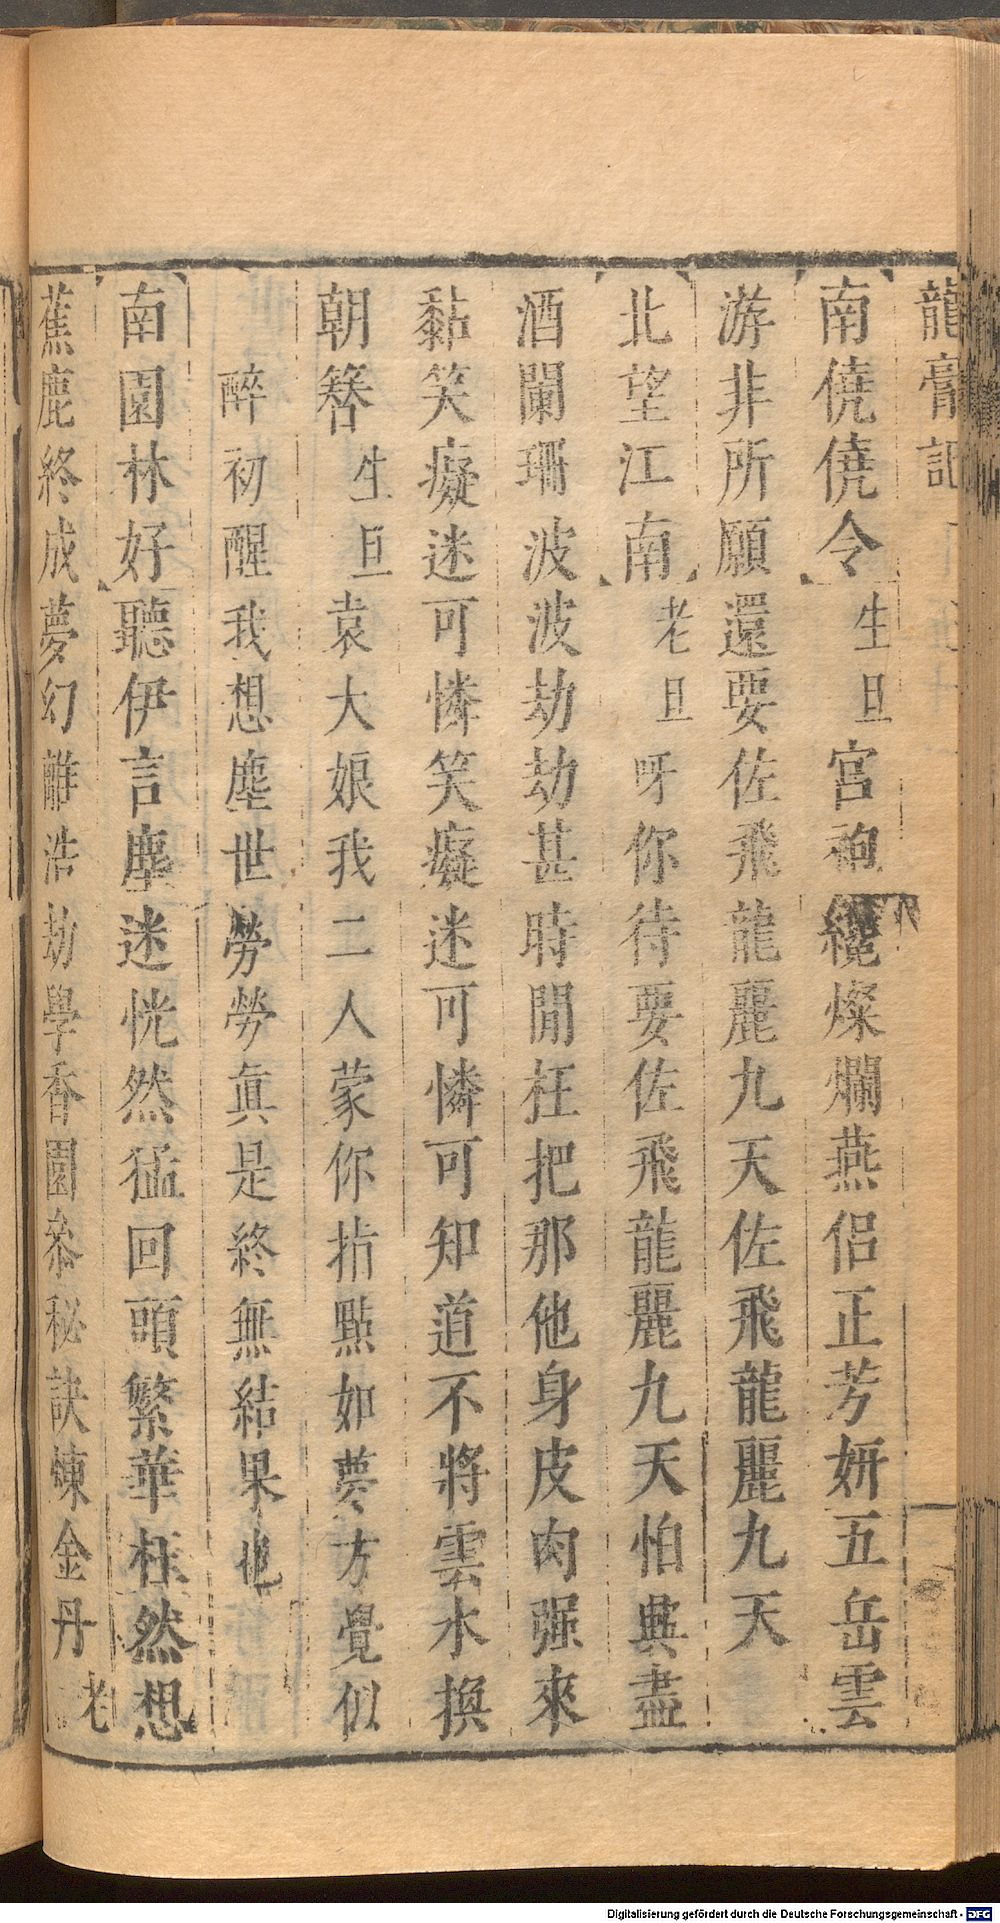 龍膏記
南僥僥令生旦宮袍纔燦爛燕侶正芳妍五岳雲
游非所願還要佐飛龍麗九天佐飛龍麗九天
北望江南老旦呀你待要佐飛龍麗九天怕典盡
酒闌珊波波劫劫甚時閒枉把那他身皮肉强來
黏笑癡迷可憐笑癡迷可憐可知道不將雲水換
朝簪生旦袁大娘我二人蒙你指點如夢方覺似
醉初醒我想塵世勞勞眞是終無結果也
南園林好聽伊言塵迷恍然猛回頭繁華枉然想
蕉鹿終成夢幻離浩劫學香園叅秘訣煉金丹老
Digitalisierung gefördert durch die Deutsche Forschungsgemeinschaft - DFG